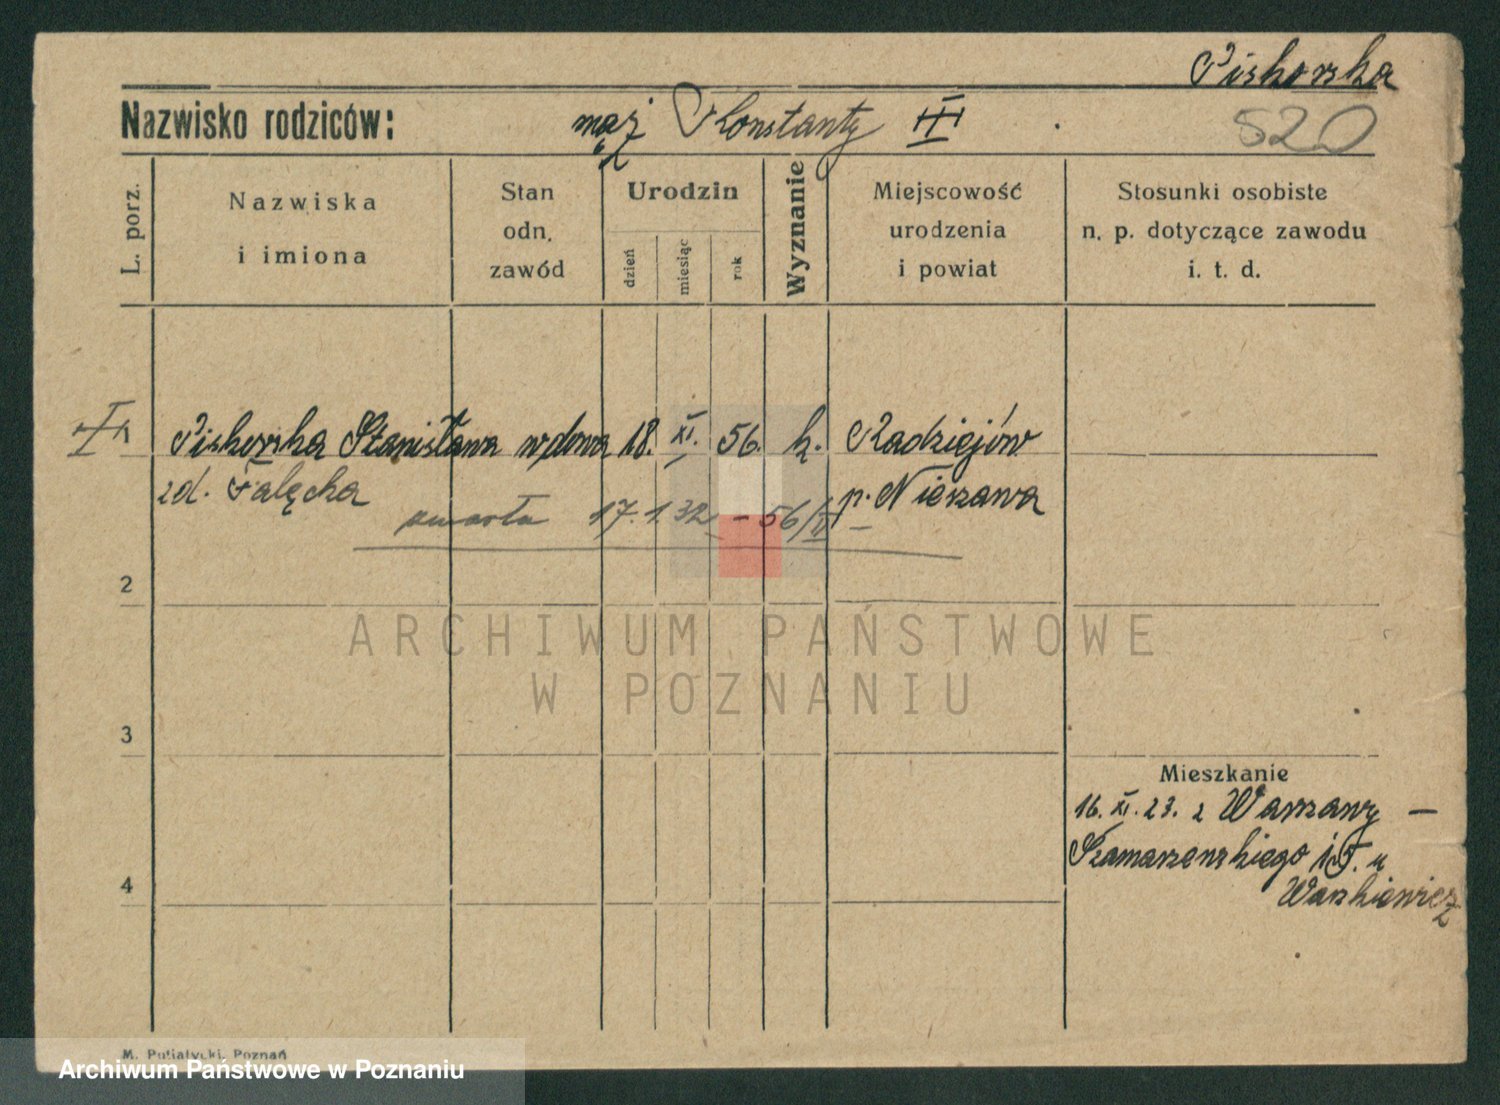 Piskorska
Nazwisko rodziców: mąż Konstanty
520
L. porz.
Nazwiska
i imiona
Stan
odn.
zawód
Urodzin
dzień
miesiąc
rok
Wyznanie
Miejscowość
urodzenia
i powiat
Stosunki osobiste
n. p. dotyczące zawodu
i. t. d.
Piskorska Stanisława wdowa 18. XI. 56. k. Radziejów
zd. Falęcka p. Nieszawa
zmarła 17.1.32 – 56/IV
2
3
4
Mieszkanie
16. XI. 23. z Warszawy –
Szamarzewskiego 15. u
Waszkiewicz
ARCHIWUM PAŃSTWOWE
W POZNANIU
M. Putiatycki, Poznań
Archiwum Państwowe w Poznaniu